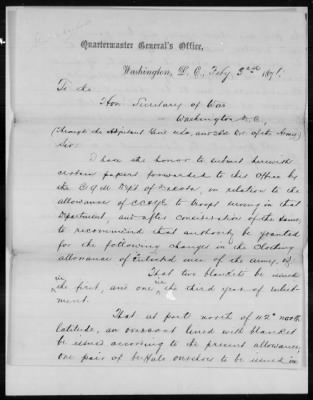 Quartermaster General's Office,
Washington, D. C., Feby. 3rd 187
To the
Hon. Secretary of War
Washington D.C.
(Through the Adjutant Genl of the Army)
Sir:
I have the honor to submit herewith
certain papers forwarded to this Office by
the C.Q.M. Dept of Dakota, in relation to the
allowances of CC&GE to troops serving in that
Department, and after consideration of the same,
to recommend that authority be granted
for the following changes in the Clothing
allowance of Enlisted men of the Army,
That two blankets be issued
in the first, and one in the third year of enlist-
ment.
That at posts north of 42° north
latitude, an overcoat lined with blanket
be issued according to the present allowance,
one pair of buffalo overshoes to be issued in